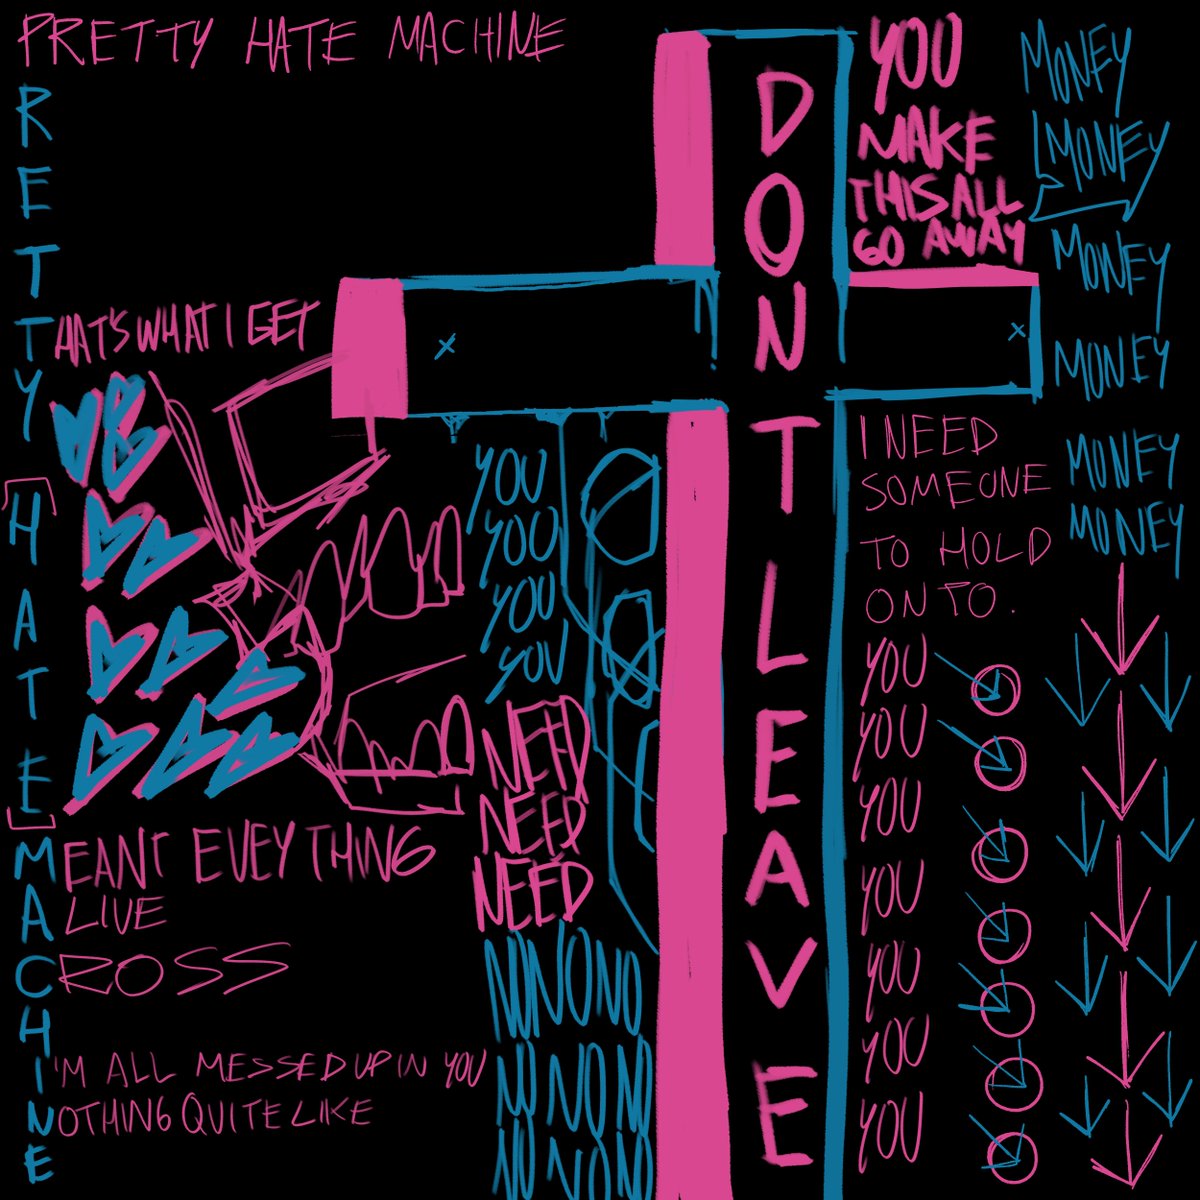 PRETTY HATE MACHINE
RETTY [HATE] MACHINE
HAT'S WHAT I GET
EANT EVEYTHING
LIVE
ROSS
'M ALL MESSED UP IN YOU
OTHING QUITE LIKE
YOU
YOU
YOU
YOU
NEED
NEED
NEED
NO NO NO
NO NO NO
NO NO NO
DONT LEAVE
YOU
MAKE
THIS ALL
GO AWAY
I NEED
SOMEONE
TO HOLD
ON TO.
YOU
YOU
YOU
YOU
YOU
YOU
YOU
MONEY
MONEY
MONEY
MONEY
MONEY
MONEY